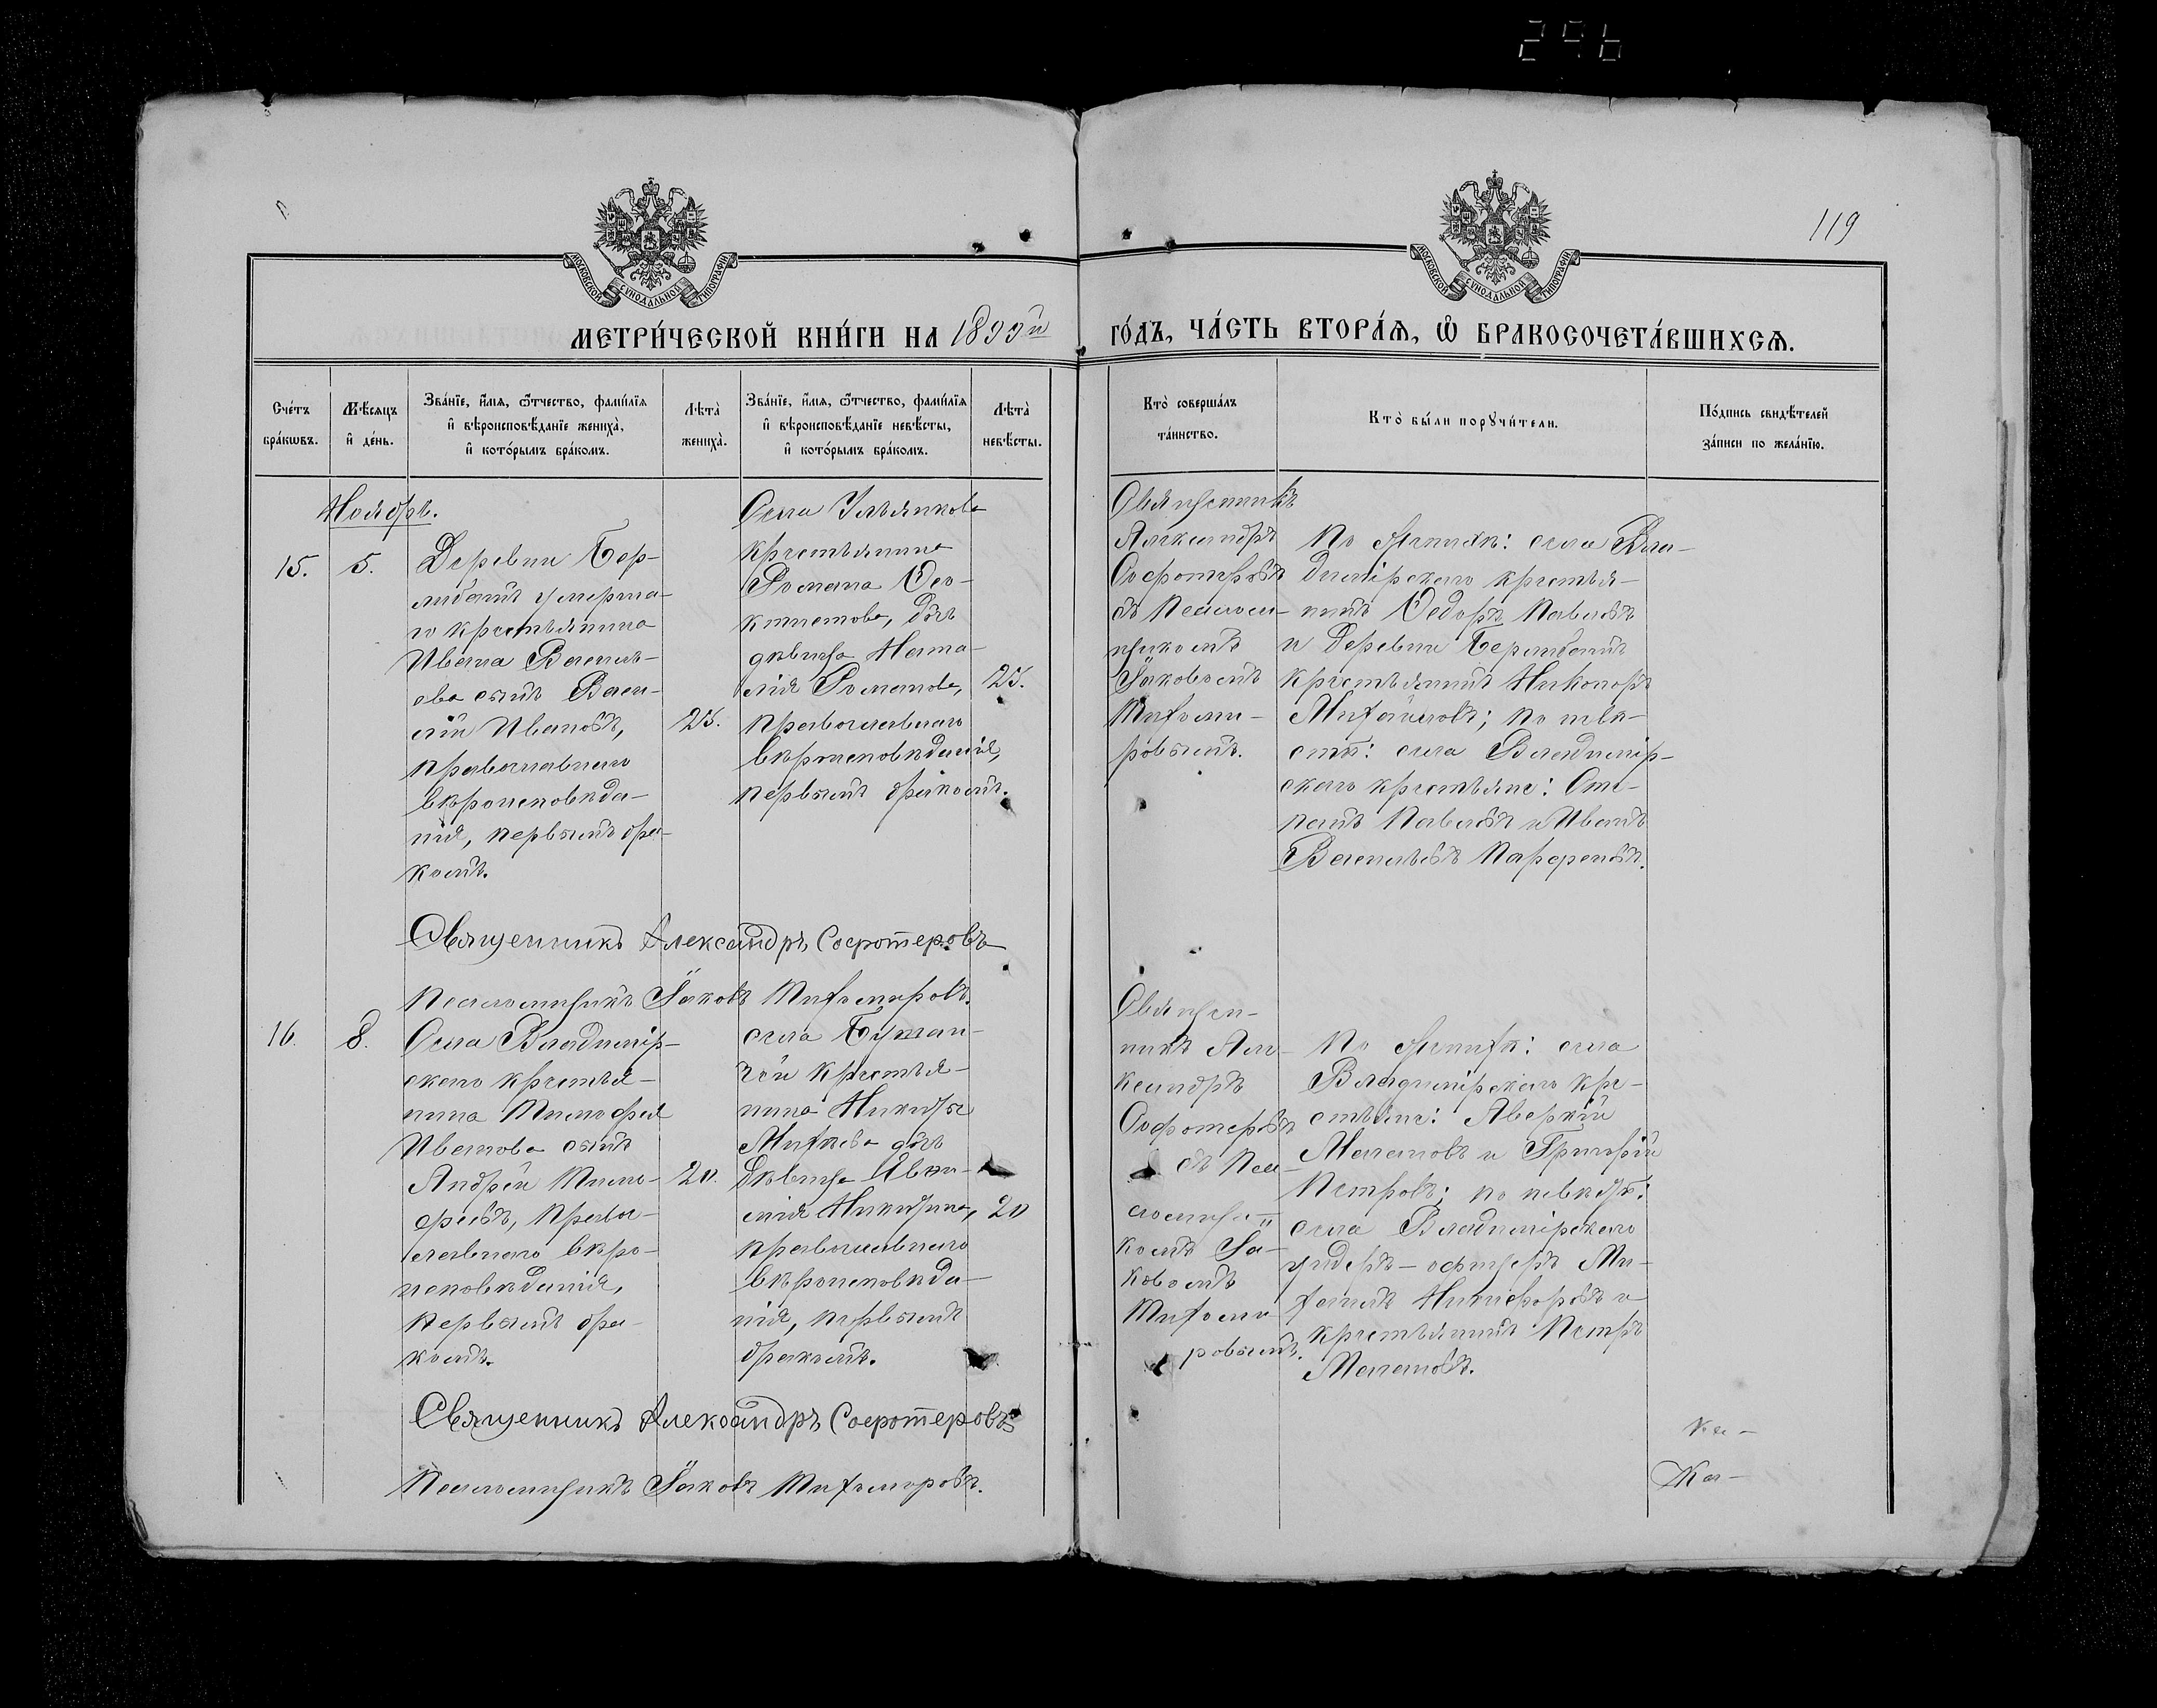 296
119
МОСКОВСКОЙ СѴНОДАЛЬНОЙ ТИПОГРАФІИ
МОСКОВСКОЙ СѴНОДАЛЬНОЙ ТИПОГРАФІИ
МЕТРИ́ЧЕСКОЙ КНИ́ГИ НА 1899й
ГО́ДЪ, ЧА́СТЬ ВТОРА́Ѧ, Ѡ҆ БРАКОСОЧЕТА́ВШИХСѦ.
Сче́тъ
бра́кѡвъ.
Мѣ́сѧцъ
и҆ де́нь.
Зва́нїе, и҆́мѧ, ѻ҆́тчество, фами́лїѧ
и҆ вѣроисповѣ́данїе жениха̀,
и҆ кото́рымъ бра́комъ.
Лѣ́та̀
жениха̀.
Зва́нїе, и҆́мѧ, ѻ҆́тчество, фами́лїѧ
и҆ вѣроисповѣ́данїе невѣ́сты,
и҆ кото́рымъ бра́комъ.
Лѣ́та̀
невѣ́сты.
Кто̀ соверша́лъ
та́инство.
Кто̀ бы́ли порꙋчи́тели.
По́дпись свидѣ́телей
за́писи по жела́нїю.
Ноябрь.
15.
5.
Деревни Бер-
либашъ умерша-
го крестьянина
Ивана Василь-
ева сынъ Васи-
лій Ивановъ,
православнаго
вѣроисповѣда-
нія, первымъ бра-
комъ.
25.
Села Ульянкова
крестьянина
Романа Ѳео-
ктистова, дочь
дѣвица Ната-
лія Романова,
православнаго
вѣроисповѣданія,
первымъ бракомъ.
25.
Священникъ
Александръ
Софотеровъ
съ псаломщ-
щикомъ
Іаковомъ
Тихоми-
ровымъ.
По женихѣ: села Вла-
димірскаго крестья-
нинъ Ѳедоръ Павловъ
и деревни Берлибашъ
крестьянинъ Никоноръ
Михайловъ; по невѣ-
стѣ: села Владимір-
скаго крестьяне: Сте-
панъ Павловъ и Иванъ
Васильевъ Парфеновъ.
Священникъ Александръ Софотеровъ
Псаломщикъ Іаковъ Тихомировъ.
16.
8.
Села Владимір-
скаго крестья-
нина Тимофея
Иванова сынъ
Андрей Тимо-
феевъ, право-
славнаго вѣро-
исповѣданія,
первымъ бра-
комъ.
20.
села
крестья-
нина Никиты
дочь
дѣвица
Никитина,
православнаго
вѣроисповѣда-
нія, первымъ
бракомъ.
20
Священ-
никъ Але-
ксандръ
Софотеровъ
съ пса-
ломщи-
комъ Іа-
ковомъ
Тихоми-
ровымъ.
По женихѣ: села
Владимірскаго кре-
стьяне: Аверкій
и Григорій
Петровъ; по невѣстѣ:
села Владимірскаго
ундеръ-офицеръ Ми-
хаилъ Никифоровъ и
крестьянинъ Петръ
Священникъ Александръ Софотеровъ
Псаломщикъ Іаковъ Тихомировъ.
ка-
Ка-